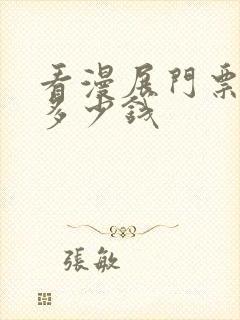 看漫展門票
多少錢
張敏